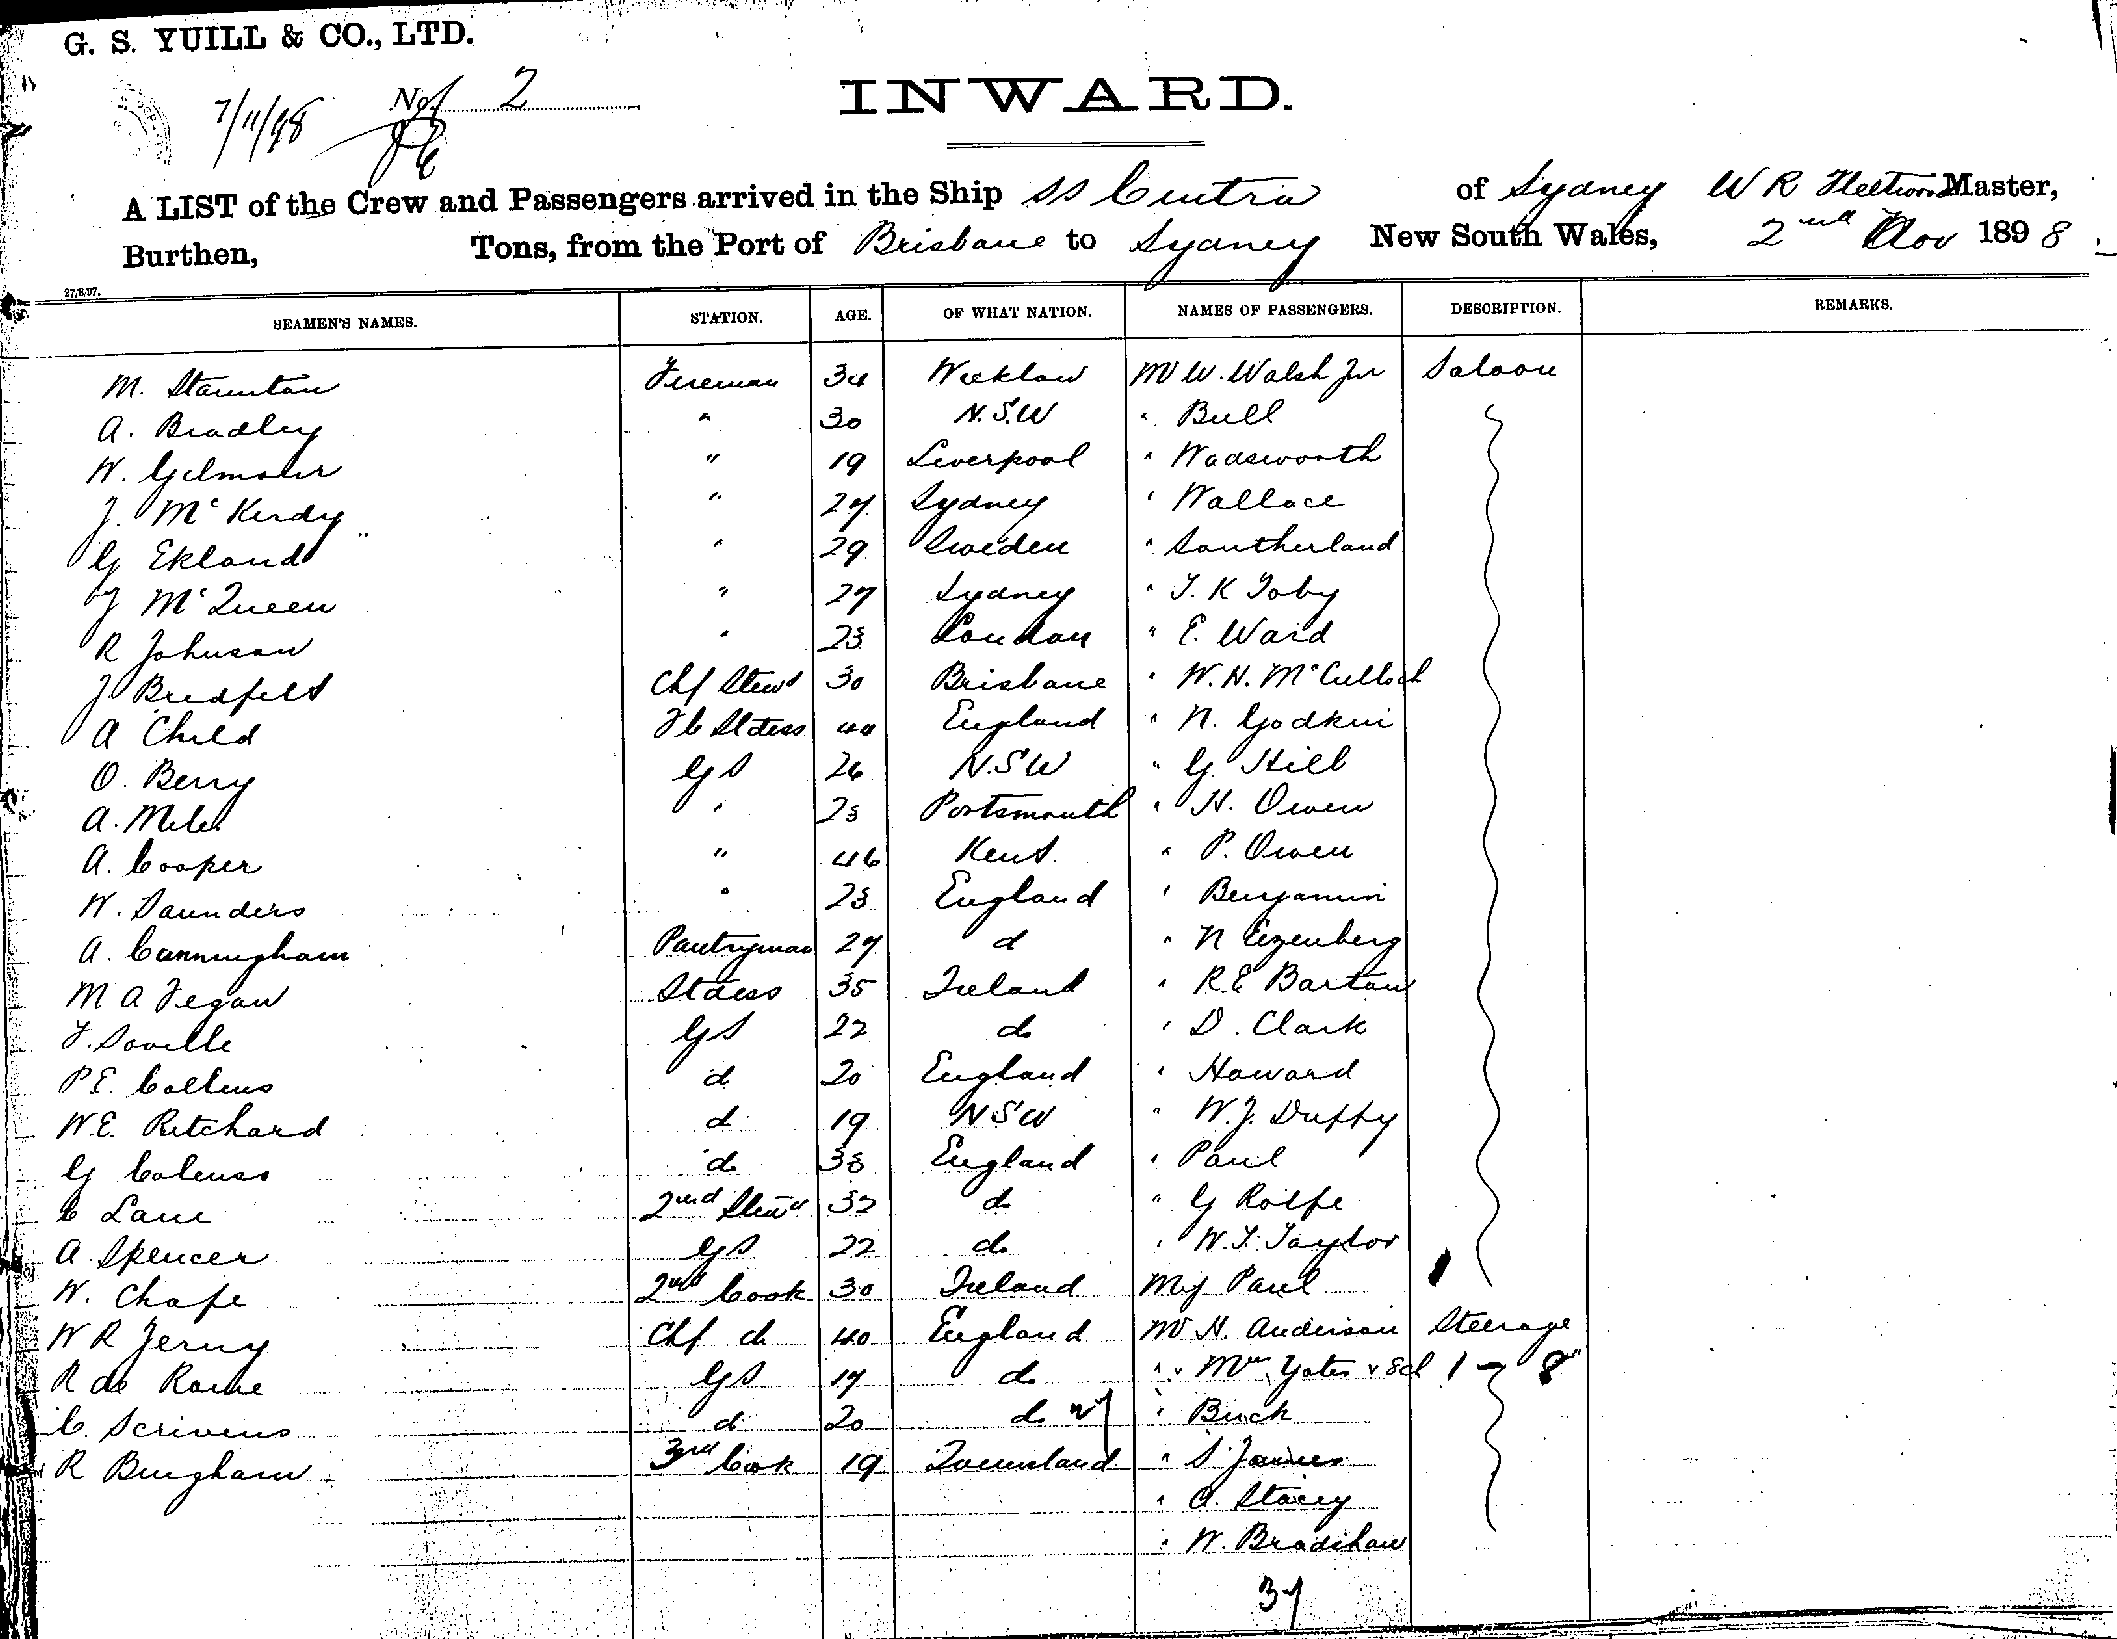 G. S. YUILL & CO., LTD.
7/11/98 No. 2
INWARD.
A LIST of the Crew and Passengers arrived in the Ship SS Cintra of Sydney W R Master,
Burthen, Tons, from the Port of Brisbane to Sydney New South Wales, 2nd Nov 1898
27/8/97.
SEAMEN'S NAMES. STATION. AGE. OF WHAT NATION. NAMES OF PASSENGERS. DESCRIPTION. REMARKS.
M. Staunton Fireman 34 Wicklow Mr W. Walsh Jnr Saloon
A. Bradley " 30 N.S.W " Bull
W. Gilmour " 19 Liverpool " Wadsworth
J. McKerdy " 27 Sydney " Wallace
G Ekland " 29 Sweden " Southerland
J McQueen " 27 Sydney " T. K Toby
R Johnson " 23 London " E. Ward
J Bredfelt Chf Stewd 30 Brisbane " W. H. McCulloch
A Child F C Stdess 40 England " N. Godkin
O. Berry GS 26 N.S.W " G. Hill
A. Miles " 23 Portsmouth " H. Owen
A. Cooper " 46 Kent. " P. Owen
W. Saunders " 23 England " Benjamin
A. Cunningham Pantryman 27 d " N Eizenberg
M A Fegan Stdess 35 Ireland " R E Barton
F. Saville GS 22 do " D. Clark
P E. Collins d 20 England " Howard
W E. Ritchard d 19 N S W " W. J. Duffy
G Colenso do 38 England " Paul
C Lane 2nd Stewd 32 do " G Rolfe
A. Spencer GS 22 do " W. F. Taylor
W. Chape 2nd Cook 30 Ireland Mrs Paul
W R Jerny Chf do 40 England Mr H. Anderson Steerage
R de Raine GS 17 do " " Mrs Yates & 8cd 1 - 8
C. Scrivens d 20 do " Buck
R Bingham 3rd Cook 19 Queensland " S James
" A. Stacey
" W. Bradshaw
37